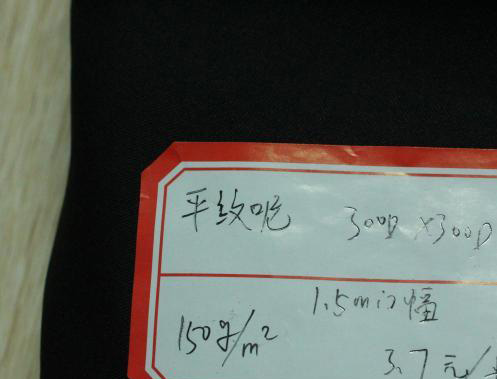 平纹呢 300D×300D
1.5m门幅
150g/m²
3.7元/